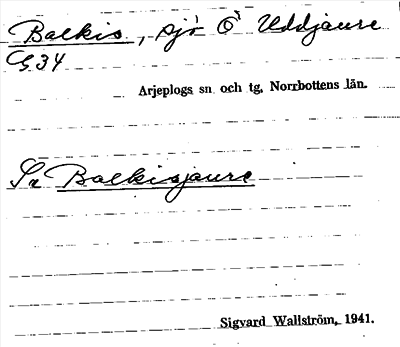 Balkis, sjö Ö Uddjaure
G.34
Arjeplogs sn och tg, Norrbottens län.
Se Balkisjaure
Sigvard Wallström, 1941.